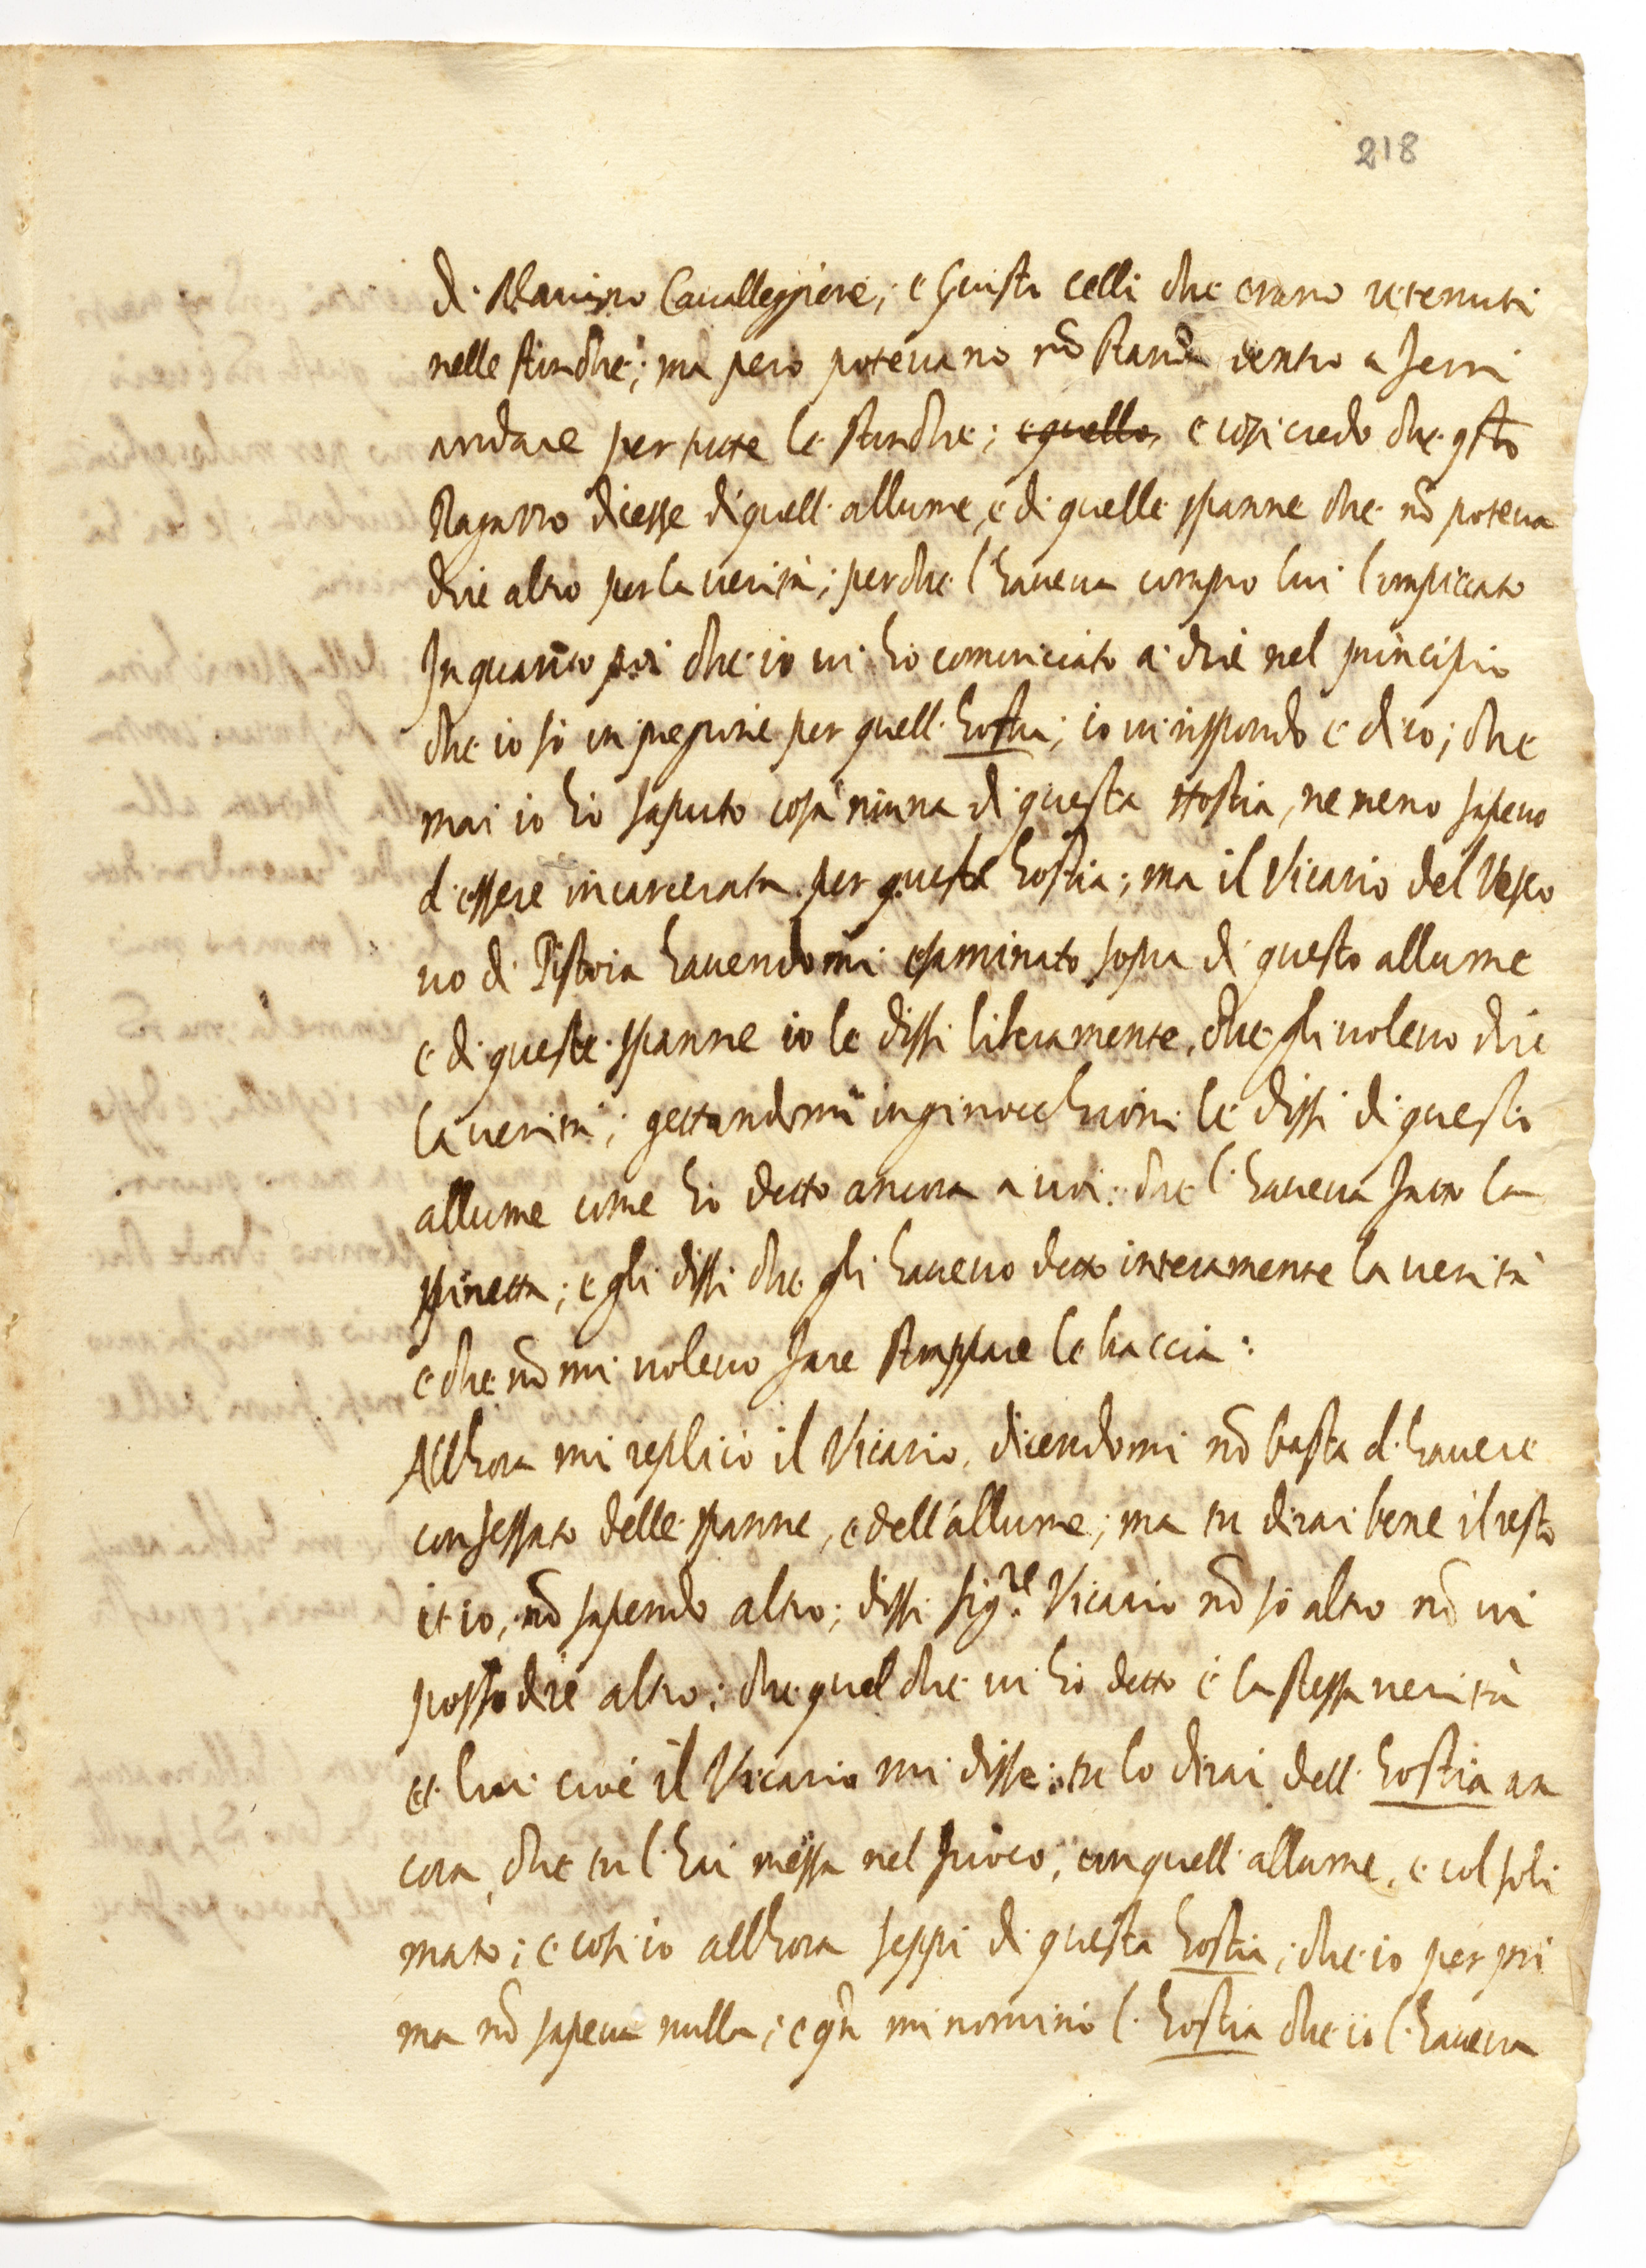 218
di Maurizio Cavalleggiere; e Giusto Celli che erano ritenuti
nelle stinche; ma però potevano nō stando dentro a ferri
andare per tutte le stinche; e quello e così credo che qsto
Ragazzo dicesse di quell' allume, e di quelle spanne che nō poteva
dire altro per la verità; perche l' haveva compro lui l'impiccato
In quanto poi che io vi hò cominciato a dire nel principio
che io sò in pregione per quell' hostia; io vi rispondo e dico; che
mai io hò saputo cosa niuna di questa Hostia, ne meno sapevo
d' essere incarcerata per questa hostia; ma il Vicario del Vesco
vo di Pistoia havendomi esaminato sopra di questo allume
e di queste spanne io le dissi liberamente, che gli volevo dire
la verità; gettandomi inginocchioni le dissi di questo
allume come hò detto ancora a voi: che l' haveva fatto la
spinetta; e gli dissi che gli havevo detto interamente la verità
e che nō mi volevo fare strappare le braccia:
Allhora mi replicò il Vicario, dicendomi nō basta d' havere
confessato delle spanne, e dell' allume; ma tu dirai bene il resto
et io, nō sapendo altro; dissi Sig.re Vicario nō sò altro nō vi
posso dire altro: che quel che vi hò detto è la stessa verità
et lui cioè il Vicario mi disse: tu lo dirai dell' hostia an
cora, che tu l' hai messa nel fuoco, con quell' allume, e col soli
mato; e così io allhora seppi di questa hostia; che io per pri
ma nō sapeva nulla; e qn̄ mi nominò l' hostia che io l' haveva